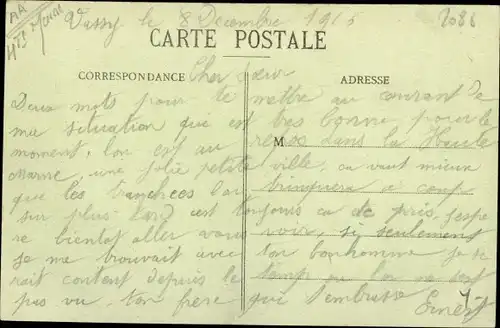 Vassy le 8 Décembre 1915
2086
CARTE POSTALE
CORRESPONDANCE
ADRESSE
Cher sœur
Deux mots pour te mettre au courant de
ma situation qui est tres bonne pour le
moment, lon est au repos dans la Haute
M
Marne, une jolie petite ville, ca vaut mieux
que les tranchees lon
a coup
sur plus tard cest toujours ca de pris, jespe
re bientot aller vous voir, si seulement
je me trouvait avec ton bonhomme je se
rait content depuis le temps ou lon ne sest
pas vu, ton frère qui t'embrasse
Ernest